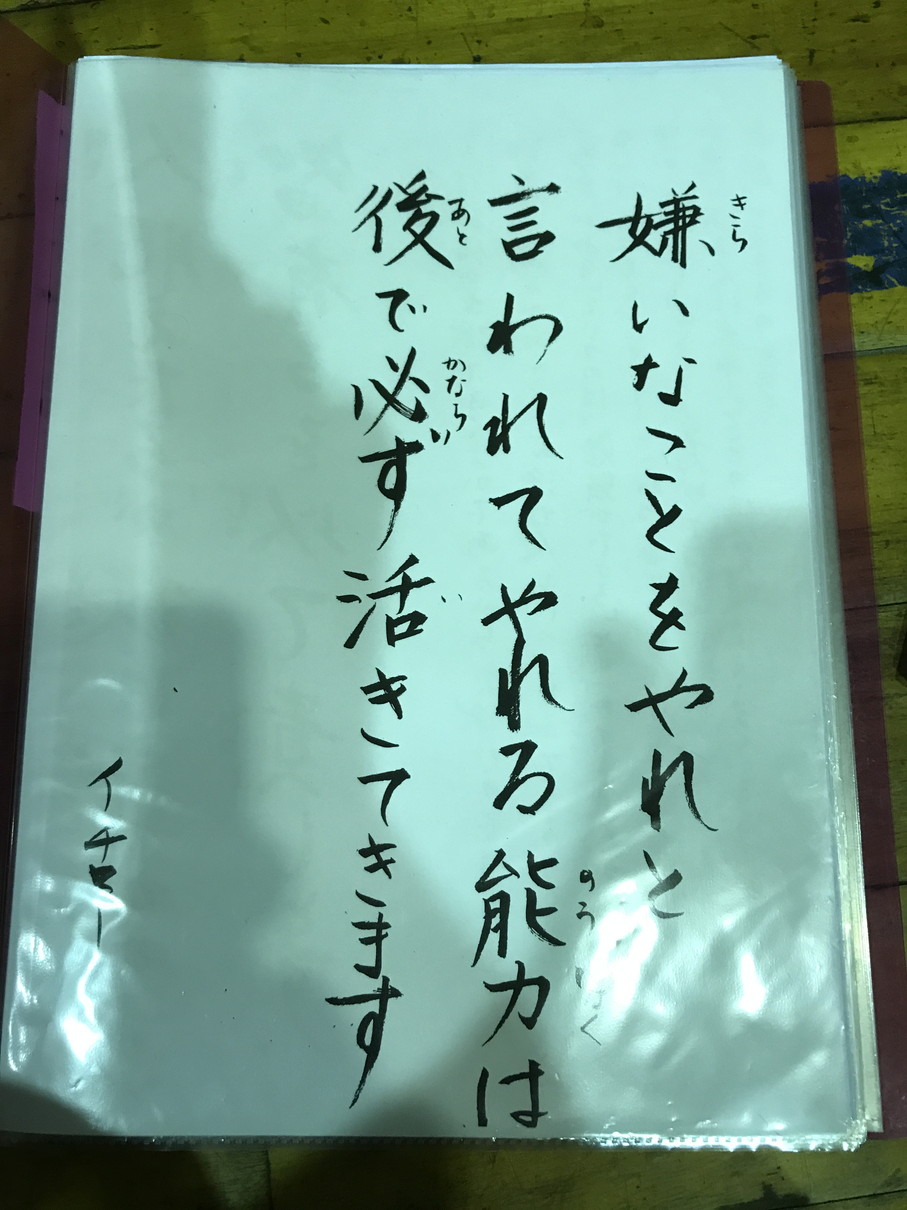 嫌いなことをやれと
きら
言われてやれる能力は
のうりょく
後で必ず活きてきます
あと
かなら
い
イチロー